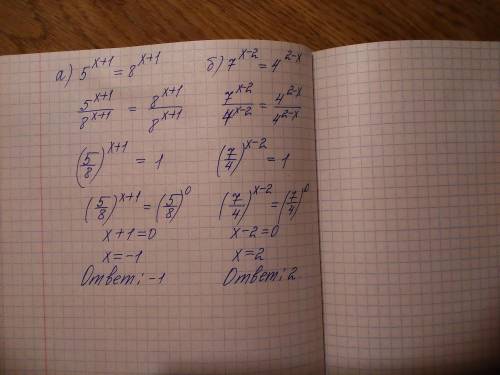 а) 5^{x+1} = 8^{x+1}
\frac{5^{x+1}}{8^{x+1}} = \frac{8^{x+1}}{8^{x+1}}
(\frac{5}{8})^{x+1} = 1
(\frac{5}{8})^{x+1} = (\frac{5}{8})^0
x+1=0
x=-1
Ответ: -1
б) 7^{x-2} = 4^{2-x}
\frac{7^{x-2}}{4^{x-2}} = \frac{4^{2-x}}{4^{2-x}}
(\frac{7}{4})^{x-2} = 1
(\frac{7}{4})^{x-2} = (\frac{7}{4})^0
x-2=0
x=2
Ответ: 2